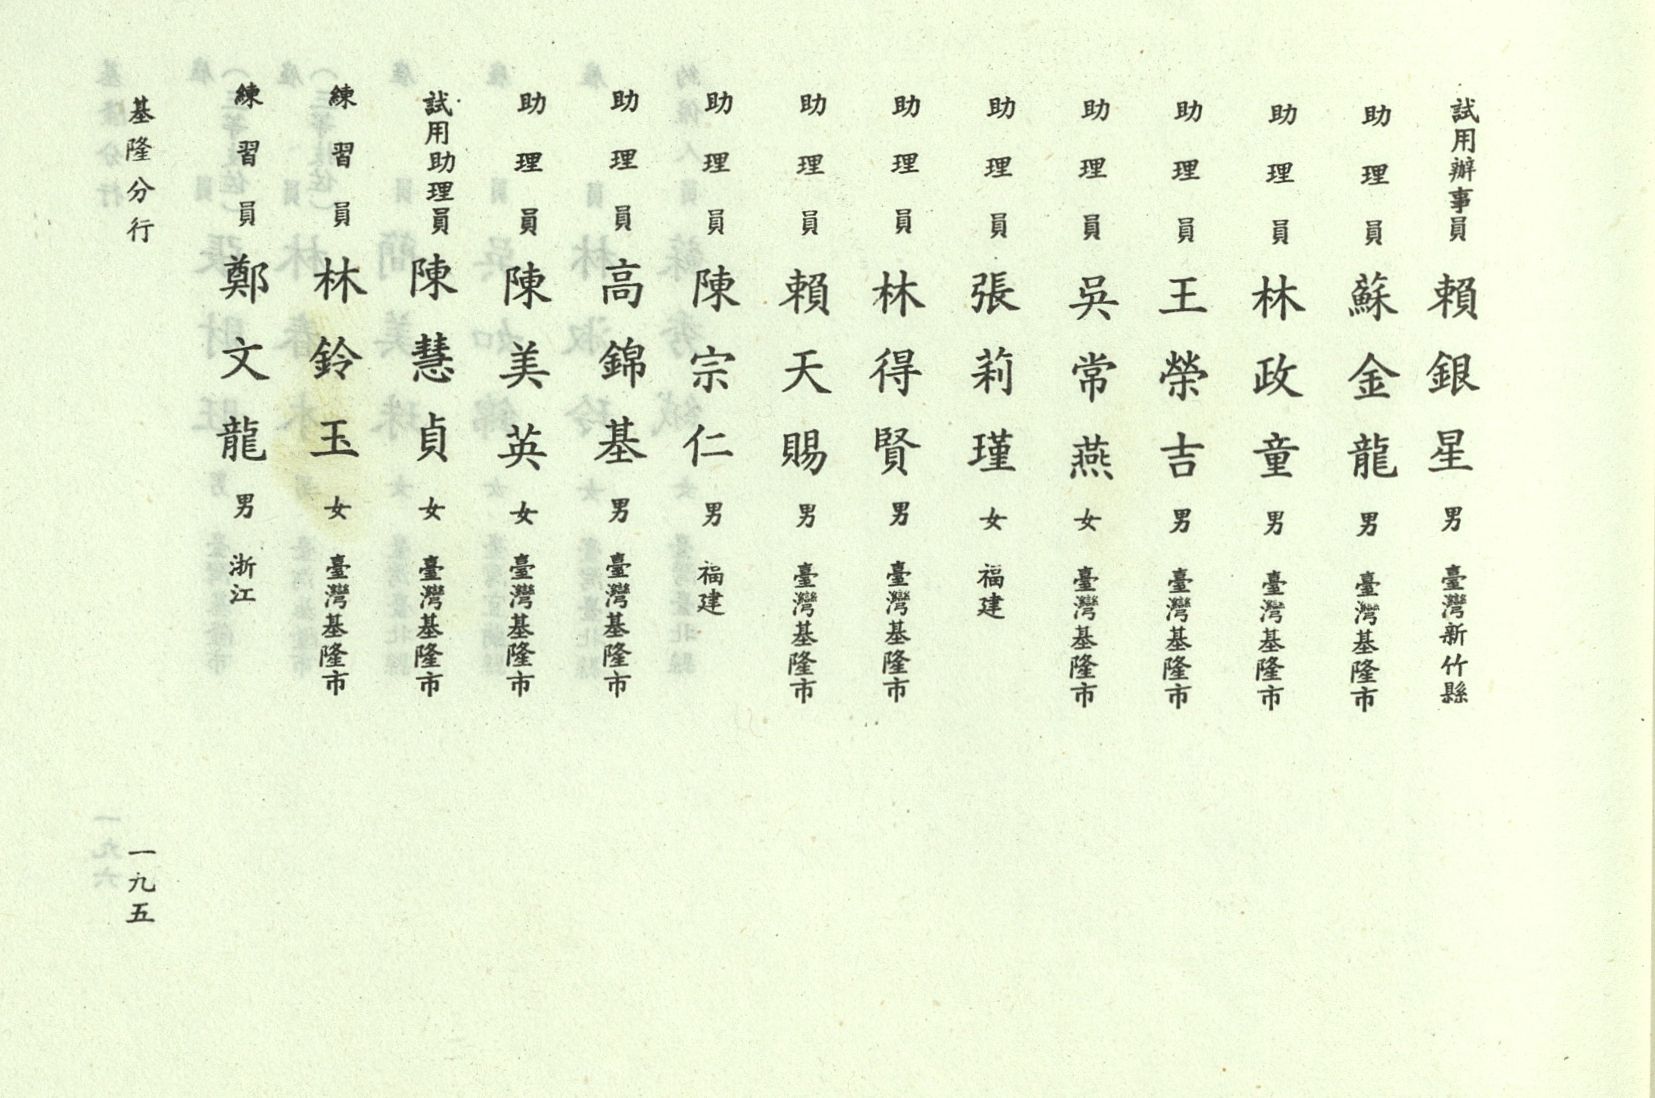 試用辦事員 賴銀星 男 臺灣新竹縣
助理員 蘇金龍 男 臺灣基隆市
助理員 林政童 男 臺灣基隆市
助理員 王榮吉 男 臺灣基隆市
助理員 吳常燕 女 臺灣基隆市
助理員 張莉瑾 女 福建
助理員 林得賢 男 臺灣基隆市
助理員 賴天賜 男 臺灣基隆市
助理員 陳宗仁 男 福建
助理員 高錦基 男 臺灣基隆市
助理員 陳美英 女 臺灣基隆市
試用助理員 陳慧貞 女 臺灣基隆市
練習員 林鈴玉 女 臺灣基隆市
練習員 鄭文龍 男 浙江
基隆分行
一九五